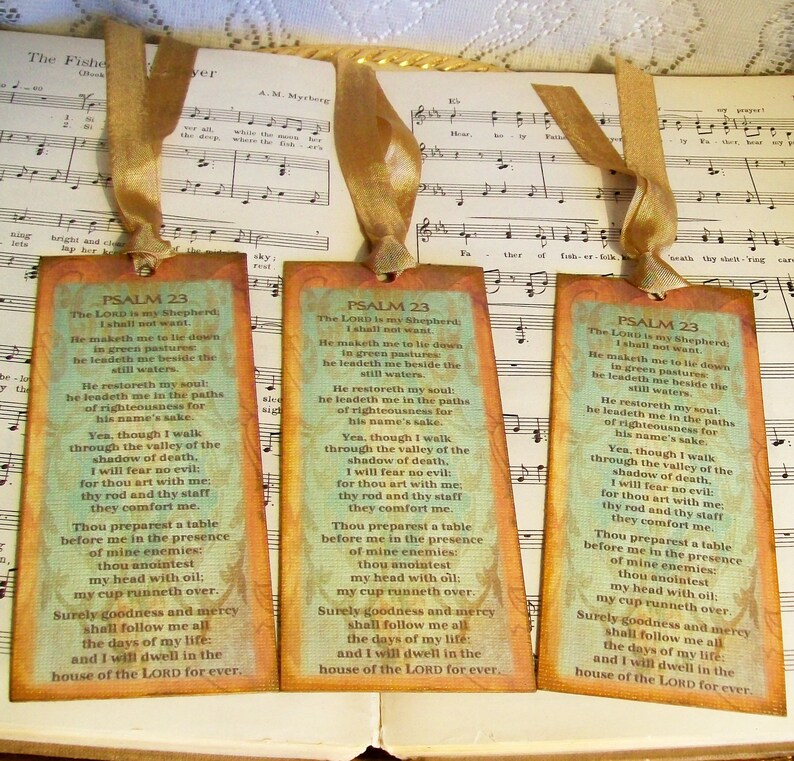 The Fishe yer
(Book
A. M. Myrberg
1. Si ver all, while the moon her
2. Si the deep, where the fish-er's
ning bright and clea of the midn sky;
lets lap her ke rest.
Eb
my prayer!
Hear, ho-ly Fathe Fa-ther, hear my p
Fa-ther of fisher-folk, neath thy shelt'ring care
PSALM 23
The LORD is my Shepherd;
I shall not want.
He maketh me to lie down
in green pastures:
he leadeth me beside the
still waters.
He restoreth my soul:
he leadeth me in the paths
of righteousness for
his name's sake.
Yea, though I walk
through the valley of the
shadow of death,
I will fear no evil:
for thou art with me;
thy rod and thy staff
they comfort me.
Thou preparest a table
before me in the presence
of mine enemies:
thou anointest
my head with oil;
my cup runneth over.
Surely goodness and mercy
shall follow me all
the days of my life:
and I will dwell in the
house of the LORD for ever.
PSALM 23
The LORD is my Shepherd;
I shall not want.
He maketh me to lie down
in green pastures:
he leadeth me beside the
still waters.
He restoreth my soul:
he leadeth me in the paths
of righteousness for
his name's sake.
Yea, though I walk
through the valley of the
shadow of death,
I will fear no evil:
for thou art with me;
thy rod and thy staff
they comfort me.
Thou preparest a table
before me in the presence
of mine enemies:
thou anointest
my head with oil;
my cup runneth over.
Surely goodness and mercy
shall follow me all
the days of my life:
and I will dwell in the
house of the LORD for ever.
PSALM 23
The LORD is my Shepherd;
I shall not want.
He maketh me to lie down
in green pastures:
he leadeth me beside the
still waters.
He restoreth my soul:
he leadeth me in the paths
of righteousness for
his name's sake.
Yea, though I walk
through the valley of the
shadow of death,
I will fear no evil:
for thou art with me;
thy rod and thy staff
they comfort me.
Thou preparest a table
before me in the presence
of mine enemies:
thou anointest
my head with oil;
my cup runneth over.
Surely goodness and mercy
shall follow me all
the days of my life:
and I will dwell in the
house of the LORD for ever.